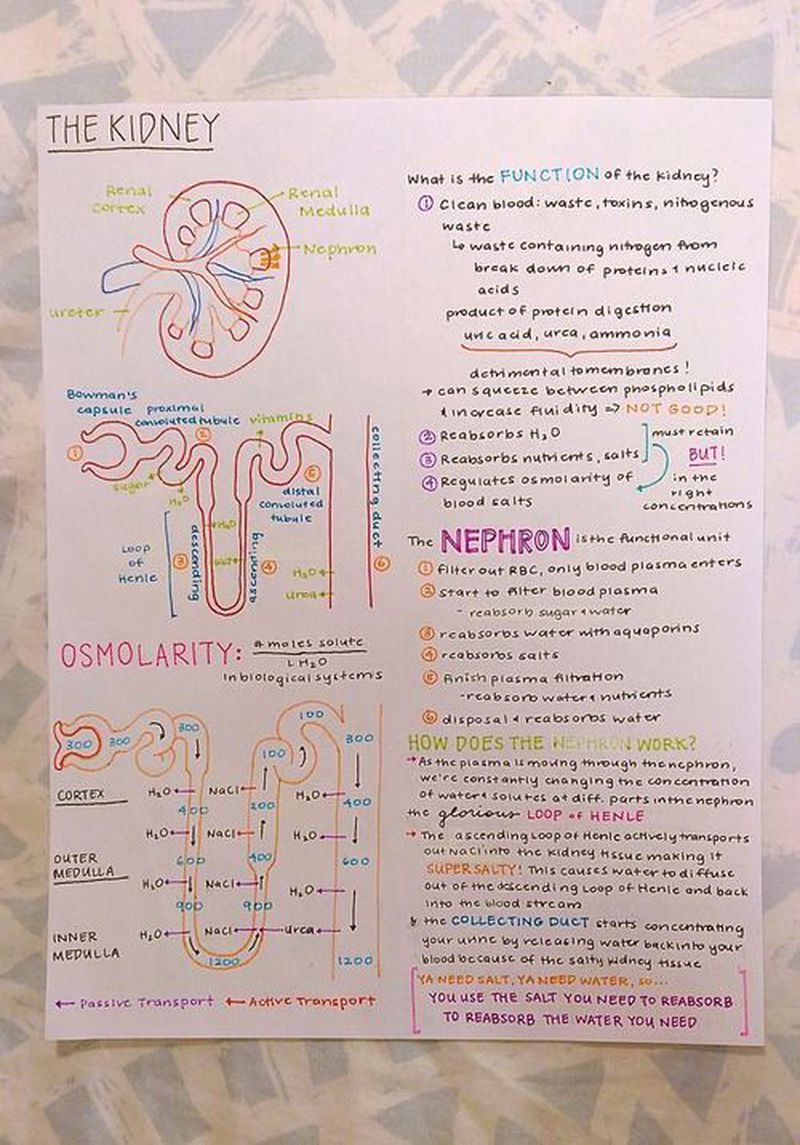 THE KIDNEY
Renal
Cortex
Renal
Medulla
Nephron
ureter
Bowman's
capsule
proximal
convoluted tubule
vitamins
①
②
sugar
H₂O
Loop
of
Henle
③
descending
H₂O
ascending
④
⑤
distal
convoluted
tubule
H₂O
urea
collecting duct
⑥
OSMOLARITY: # moles solute
L H₂O
in biological systems
300
300
300
100
100
300
CORTEX
H₂O
NaCl
200
H₂O
400
400
H₂O
NaCl
H₂O
OUTER
MEDULLA
600
400
600
H₂O
NaCl
H₂O
900
900
INNER
MEDULLA
H₂O
NaCl
urea
1200
1200
← Passive Transport ← Active Transport
What is the FUNCTION of the kidney?
① Clean blood: waste, toxins, nitrogenous
waste
↳ waste containing nitrogen from
break down of proteins & nucleic
acids
product of protein digestion
uric acid, urea, ammonia
detrimental to membranes!
→ can squeeze between phospholipids
& increase fluidity => NOT GOOD!
② Reabsorbs H₂O
③ Reabsorbs nutrients, salts
④ Regulates osmolarity of
blood salts
must retain
BUT!
in the
right
concentrations
The NEPHRON is the functional unit
① filter out RBC, only blood plasma enters
② start to filter blood plasma
- reabsorb sugar & water
③ reabsorbs water with aquaporins
④ reabsorbs salts
⑤ finish plasma filtration
- reabsorb water & nutrients
⑥ disposal & reabsorbs water
HOW DOES THE NEPHRON WORK?
→ As the plasma is moving through the nephron,
we're constantly changing the concentration
of water & solutes at diff. parts in the nephron
the glorious LOOP of HENLE
→ The ascending loop of Henle actively transports
out NaCl into the kidney tissue making it
SUPER SALTY! This causes water to diffuse
out of the descending Loop of Henle and back
into the blood stream
& the COLLECTING DUCT starts concentrating
your urine by releasing water back into your
blood because of the salty kidney tissue
YA NEED SALT, YA NEED WATER, so...
YOU USE THE SALT YOU NEED TO REABSORB
TO REABSORB THE WATER YOU NEED